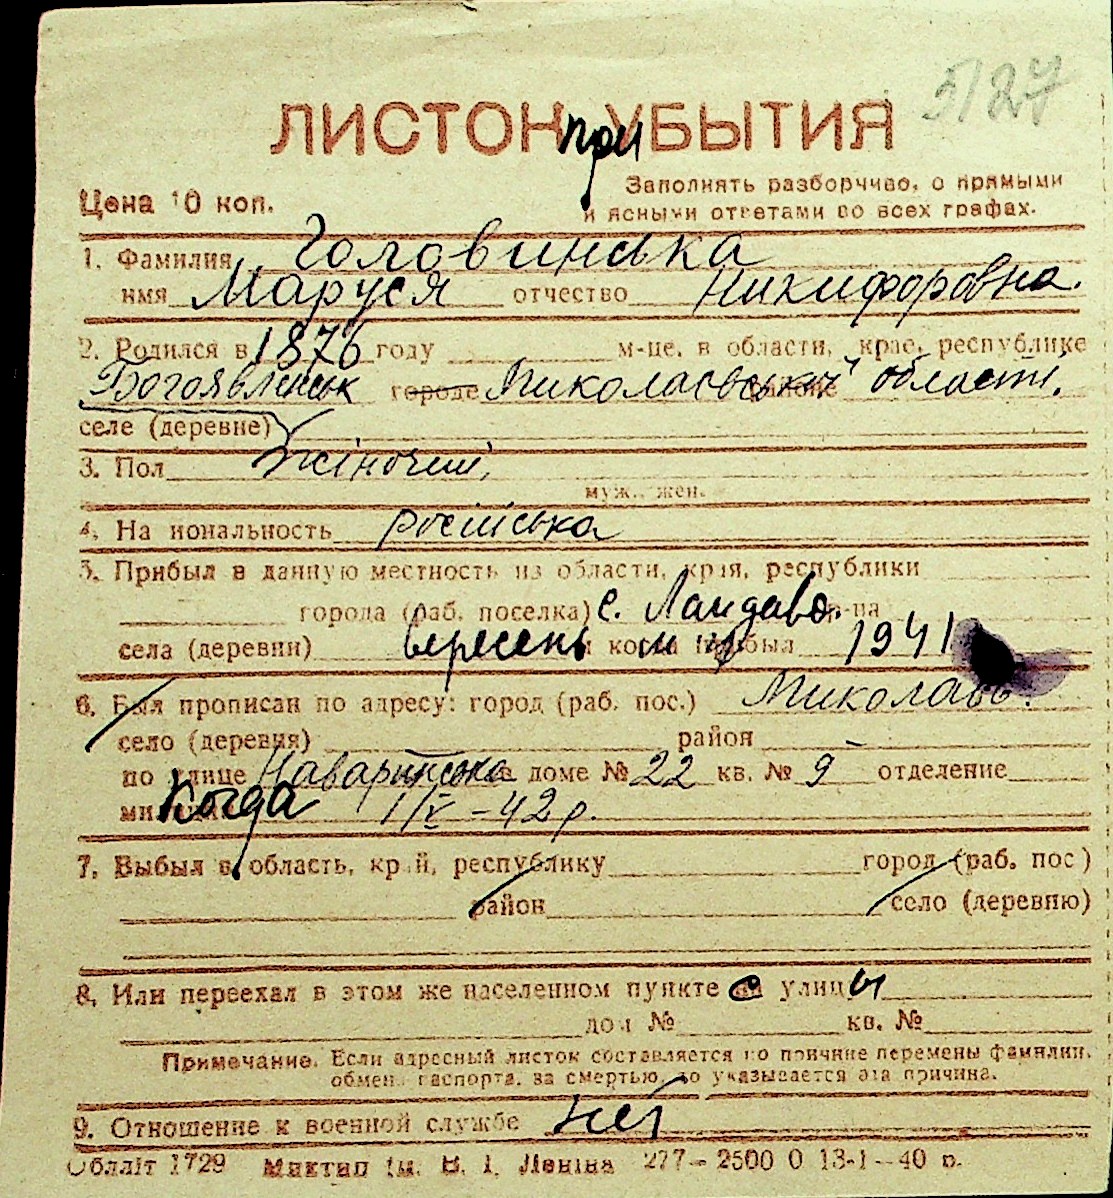 5/27
ЛИСТОК при УБЫТИЯ
Цена 10 коп.
Заполнять разборчиво, с прямыми
и ясными ответами во всех графах.
1. Фамилия Головинська
имя Маруся отчество Никифоровна.
2. Родился в 1876 году м-це, в области, крае, республике
Богоявленськ городе Миколаєвський районе області.
селе (деревне)
3. Пол жіночий,
муж., жен.
4. Национальность російська
5. Прибыл в данную местность из области, края, республики
города (раб. поселка) с. Ландаво. р-на
села (деревни) вересень и когда прибыл 1941
6. Был прописан по адресу: город (раб. пос.) Миколаєв.
село (деревня) район
по улице Наваринська доме № 22 кв. № 9 отделение
милиции когда 1/V - 42 р.
7. Выбыл в область, край, республику город (раб. пос)
район село (деревню)
8. Или переехал в этом же населенном пункте с улицы
дом № кв. №
Примечание. Если адресный листок составляется по причине перемены фамилии,
обмена паспорта, за смертью, то указывается эта причина.
9. Отношение к военной службе нет
Облліт 1729 Миктип ім. В. І. Леніна 277 - 2500 0 13-1 - 40 р.